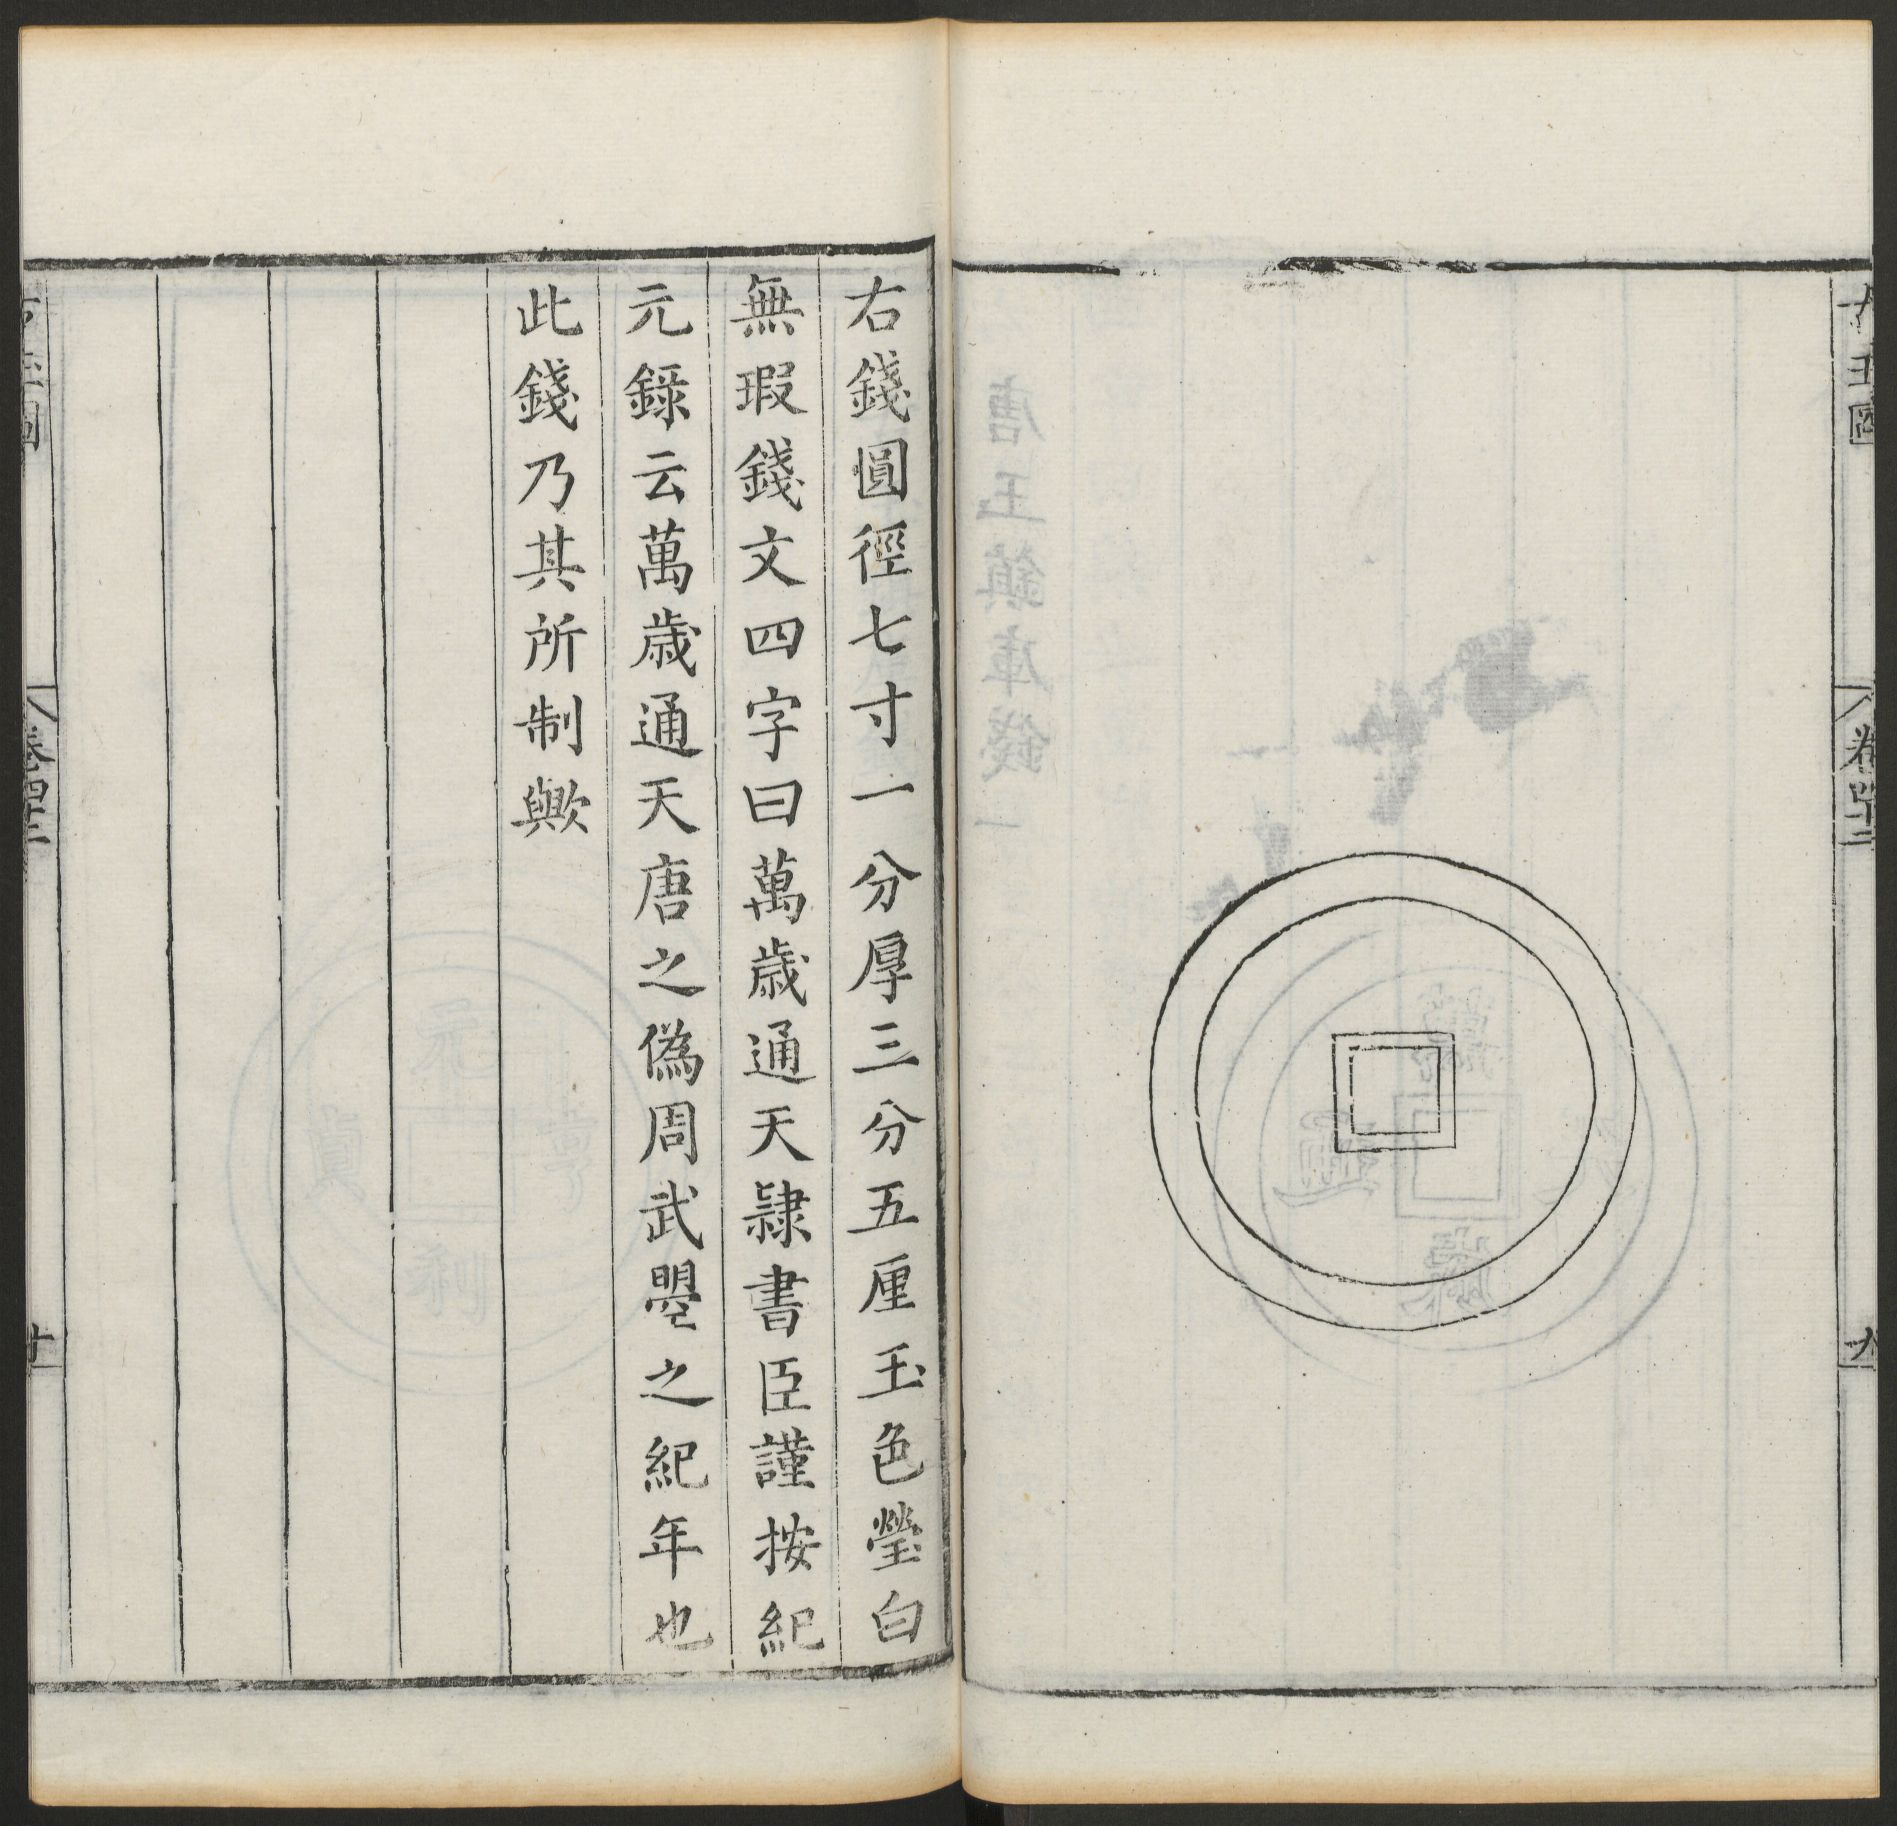 古玉圖
卷四十二
右錢圓徑七寸一分厚三分五厘玉色瑩白
無瑕錢文四字曰萬歲通天隷書臣謹按紀
元錄云萬歲通天唐之偽周武曌之紀年也
此錢乃其所制歟
古玉圖
卷四十二
十